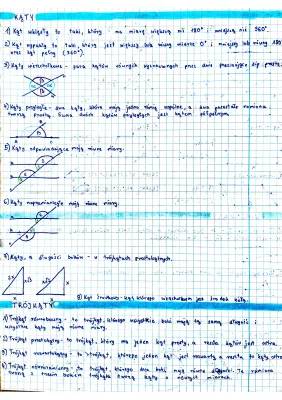 KĄTY
1) Kąt wklęsły to taki, który ma miarę większą niż 180° i mniejszą niż 360°.
2) Kąt wypukły to taki, który jest większy lub równy mierze 0° i mniejszy lub równy 180
oraz kąt pełny (360°).
3) Kąty wierzchołkowe - para kątów równych wyznaczonych przez dwie przecinające się proste.
4) Kąty przyległe - dwa kąty, które mają jedno ramię wspólne, a dwa pozostałe ramiona
tworzą prostą. Suma dwóch kątów przyległych jest kątem półpełnym.
5) Kąty odpowiadające mają równe miary.
6) Kąty naprzemianległe mają równe miary.
7) Kąty, a długości boków - w trójkątach prostokątnych.
8) Kąt środkowy - kąt, którego wierzchołkiem jest środek koła.
TRÓJKĄTY
1) Trójkąt równoboczny - to trójkąt, którego wszystkie boki mają tę samą długość i
wszystkie kąty mają równe miary.
2) Trójkąt prostokątny - to trójkąt, który ma jeden kąt prosty, a reszta kątów jest ostra.
3) Trójkąt rozwartokątny - to trójkąt, którego jeden kąt jest rozwarty, a reszta to kąty ostre
4) Trójkąt równoramienny - to trójkąt, którego dwa boki mają równe długości. Te ramiona
tworzą z trzecim bokiem trójkąta kąty o równych miarach.